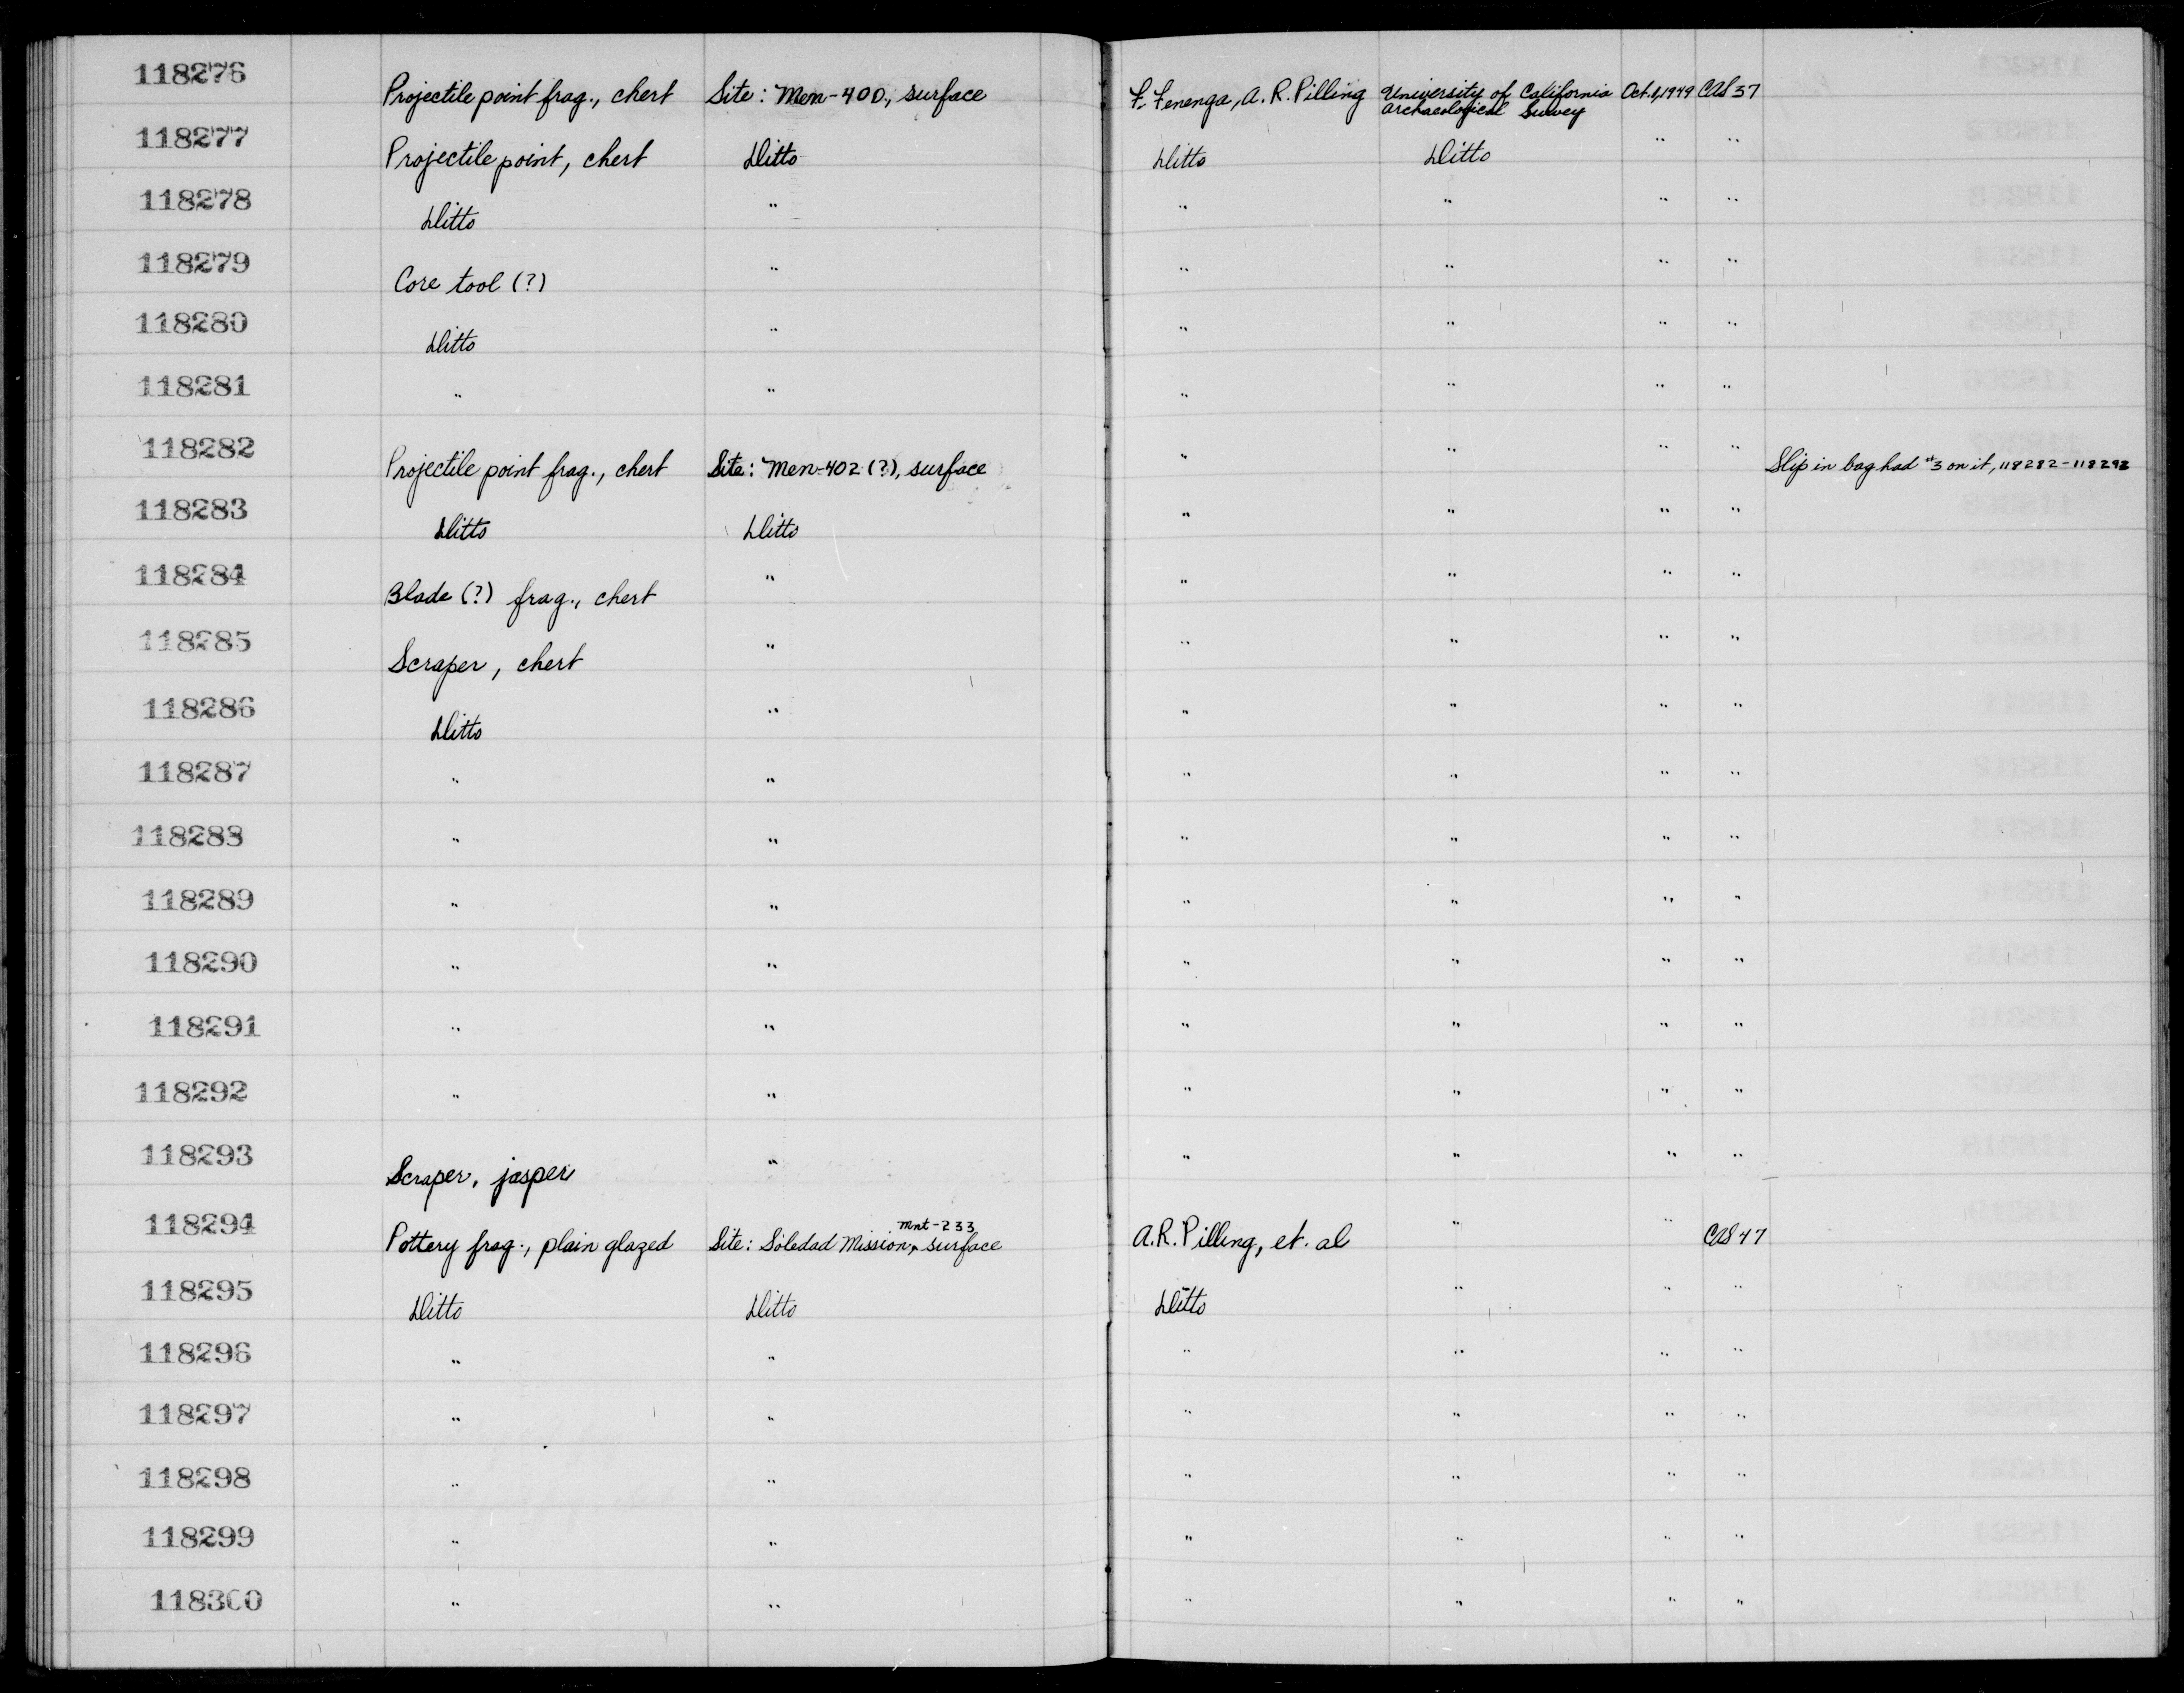 118276 Projectile point frag., chert Site: Men-400, surface F. Fenenga, A. R. Pilling University of California Archaeological Survey Oct. 1, 1949 CAS 37
118277 Projectile point, chert Ditto Ditto Ditto " "
118278 Ditto " " " " "
118279 Core tool (?) " " " " "
118280 Ditto " " " " "
118281 " " " " " "
118282 Projectile point frag., chert Site: Men-402 (?), surface " " " " Slip in bag had #3 on it, 118282-118293
118283 Ditto Ditto " " " "
118284 Blade (?) frag., chert " " " " "
118285 Scraper, chert " " " " "
118286 Ditto " " " " "
118287 " " " " " "
118288 " " " " " "
118289 " " " " " "
118290 " " " " " "
118291 " " " " " "
118292 " " " " " "
118293 Scraper, jasper " " " " "
118294 Pottery frag., plain glazed Site: Soledad Mission, Mnt-233 surface A.R. Pilling, et. al " " CAS 47
118295 Ditto Ditto Ditto " " "
118296 " " " " " "
118297 " " " " " "
118298 " " " " " "
118299 " " " " " "
118300 " " " " " "